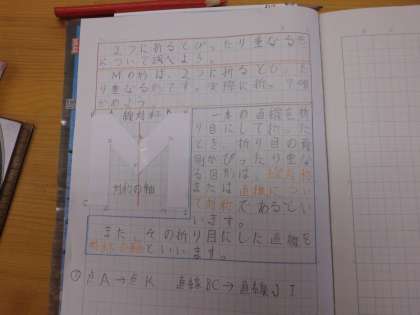 ２つに折るとぴったり重なる形
について調べよう。
Ｍの形は、２つに折るとぴった
り重なるか
線対称
対称の軸
一本の直線を折
り目にして折った
とき、折り目の両
側がぴったり重な
る図形は、線対称
または直線につい
て対称であるとい
います。
また、その折り目にした直線を
対称の軸といいます。
① 点A→点K 直線BC→直線JI